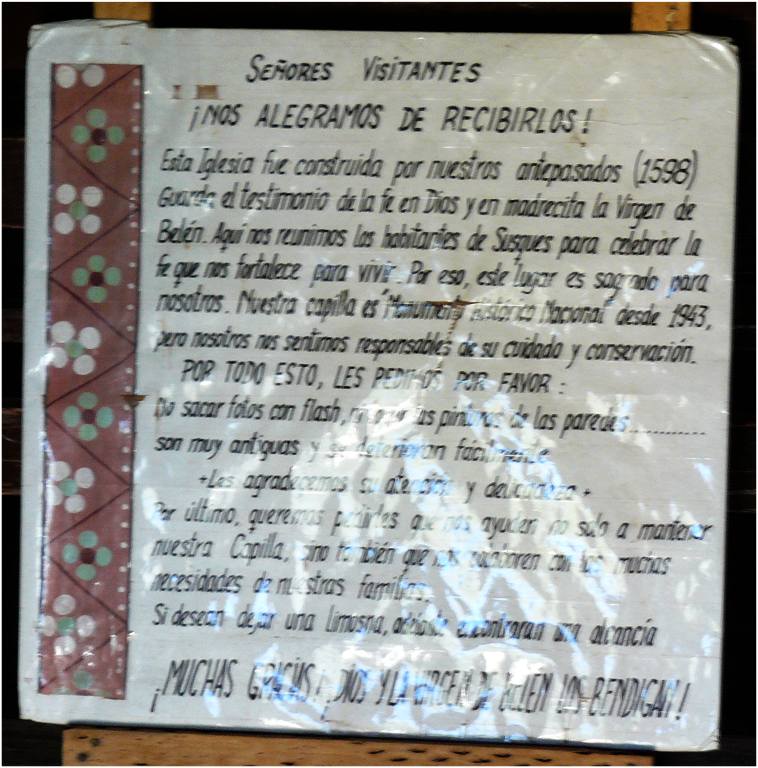 SEÑORES VISITANTES
¡NOS ALEGRAMOS DE RECIBIRLOS!
Esta Iglesia fue construida por nuestros antepasados (1598)
Guarda el testimonio de la fe en Dios y en madrecita la Virgen de
Belén. Aqui nos reunimos los habitantes de Susques para celebrar la
fe que nos fortalece para vivir. Por eso, este lugar es sagrado para
nosotros. Nuestra capilla es "Monumento Histórico Nacional" desde 1943,
pero nosotros nos sentimos responsables de su cuidado y conservación.
POR TODO ESTO, LES PEDIMOS POR FAVOR:
No sacar fotos con flash, ni las pinturas de las paredes............
son muy antiguas y se deterioran fácilmente
+Les agradecemos su atención y delicadeza+
Por último, queremos pedirles que nos ayuden no solo a mantener
nuestra Capilla, sino también que nos colaboren con las muchas
necesidades de nuestras familias.
Si desean dejar una limosna, adelante encontraran una alcancía
¡MUCHAS GRACIAS! ¡DIOS Y LA VIRGEN DE BELEN LOS BENDIGAN!